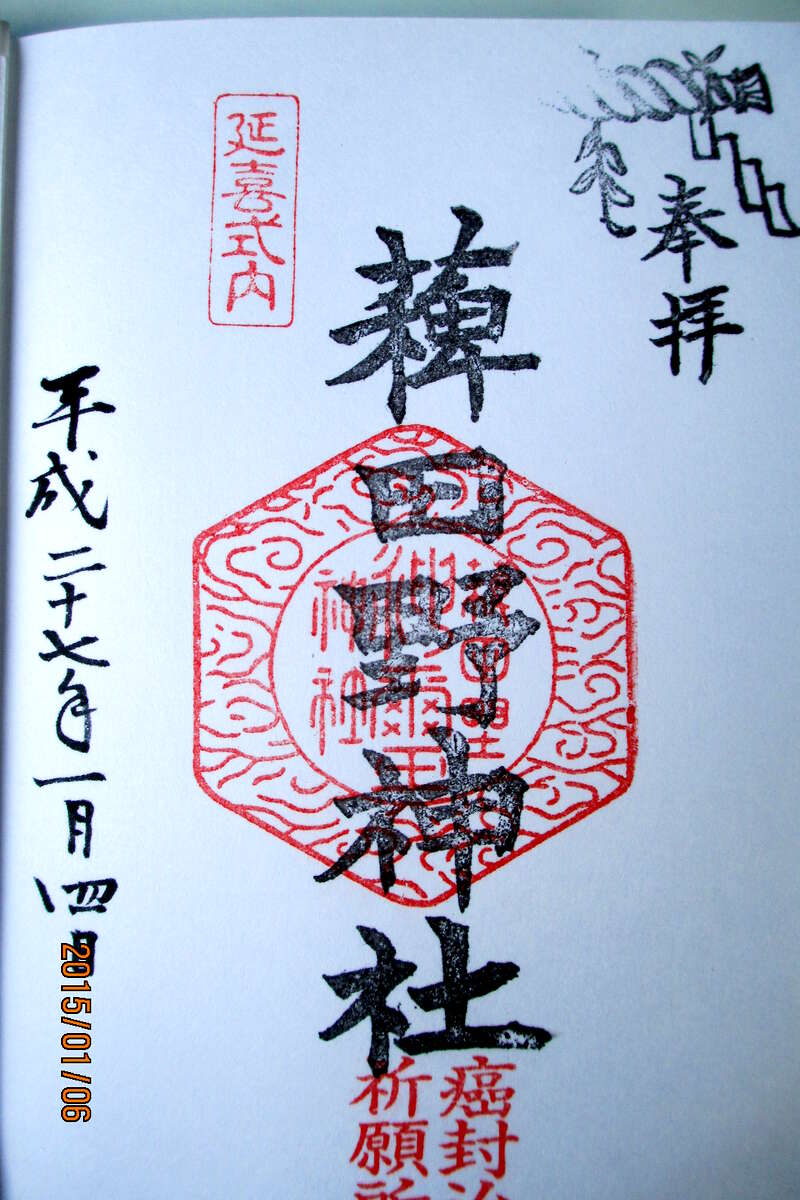 奉拝
薭田野神社
癌封
祈願
延喜式内
平成二十七年一月四日
2015/01/06